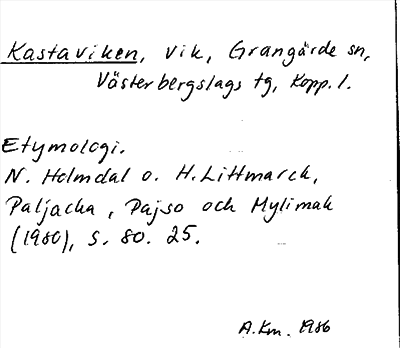 Kastaviken, vik, Grangärde sn,
Västerbergslags tg, Kopp. l.
Etymologi.
N. Holmdal o. H. Littmarck,
Paljacka, Pajso och Mylimak
(1980), s. 80. 25.
A.Km. 1986